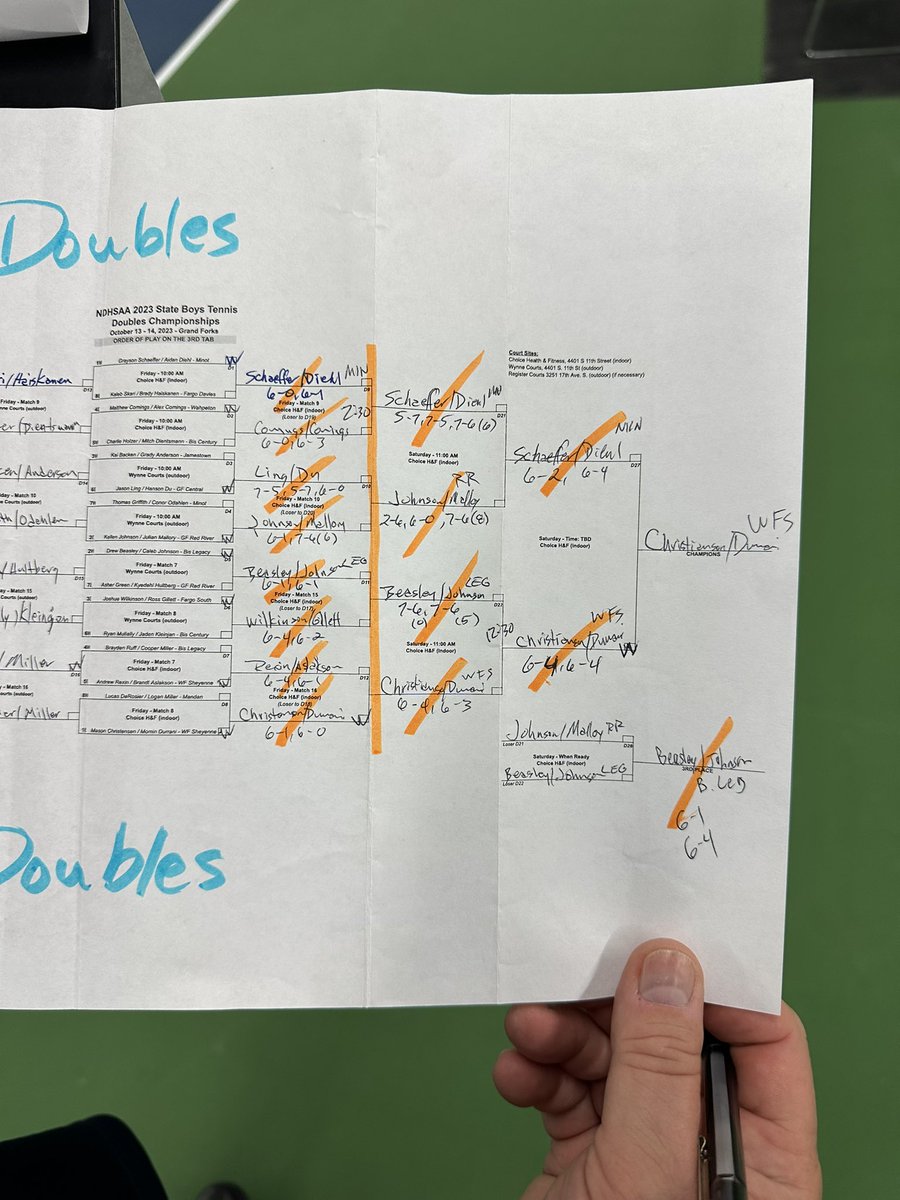 Doubles
NDHSAA 2023 State Boys Tennis
Doubles Championships
October 13 - 14, 2023 - Grand Forks
ORDER OF PLAY ON THE 3RD TAB
Grayson Schaeffer / Aiden Diehl - Minot
W
D1
Friday - 10:00 AM
Choice H&F (indoor)
Kaleb Skari / Brady Haiskanen - Fargo Davies
Matthew Comings / Alex Comings - Wahpeton
D2
Friday - 10:00 AM
Choice H&F (indoor)
Charlie Holzer / Mitch Dientsmann - Bis Century
Kai Backen / Grady Anderson - Jamestown
D3
Friday - 10:00 AM
Wynne Courts (outdoor)
Jason Ling / Hanson Du - GF Central
Thomas Griffith / Conor Odahlen - Minot
D4
Friday - 10:00 AM
Wynne Courts (outdoor)
Kallen Johnson / Julian Mallory - GF Red River
Drew Beasley / Caleb Johnson - Bis Legacy
Friday - Match 7
Wynne Courts (outdoor)
Asher Green / Kyedehl Hultberg - GF Red River
Joshua Wilkinson / Ross Gillett - Fargo South
Friday - Match 8
Wynne Courts (outdoor)
Ryan Mullally / Jaden Kleinjan - Bis Century
Brayden Ruff / Cooper Miller - Bis Legacy
D7
Friday - Match 7
Choice H&F (indoor)
Andrew Rexin / Brandt Aslakson - WF Sheyenne
Lucas DeRosier / Logan Miller - Mandan
D8
Friday - Match 8
Choice H&F (indoor)
Mason Christensen / Momin Durrani - WF Sheyenne
/Haiskanen
D13
/Anderson
D14
/Odahlen
/Hultberg
D15
/Miller W
D16
/Miller
Schaeffer/Diehl MIN
D9
6-0, 6-1
Friday - Match 9
Choice H&F (indoor)
(Loser to D19)
2:30
Comings/Comings
6-0, 6-3
Ling/Du
D10
7-5, 5-7, 6-0
Friday - Match 10
Choice H&F (indoor)
(Loser to D20)
Johnson/Mallory
6-1, 7-6(6)
Beasley/Johnson LEG
D11
6-1, 6-1
Friday - Match 15
Choice H&F (indoor)
(Loser to D17)
Wilkinson/Gillett
6-4, 6-2
Rexin/Aslakson
D12
6-4, 6-1
Friday - Match 16
Choice H&F (indoor)
(Loser to D18)
Christensen/Durrani W
6-1, 6-0
Schaeffer/Diehl MIN
D21
5-7, 7-5, 7-6(6)
Saturday - 11:00 AM
Choice H&F (indoor)
RR
Johnson/Malloy
2-6, 6-0, 7-6(8)
LEG
Beasley/Johnson
D22
7-6, 7-6
(0) (5)
Saturday - 11:00 AM
Choice H&F (indoor)
WFS
Christiansen/Durrani
6-4, 6-3
Court Sites:
Choice Health & Fitness, 4401 S 11th Street (indoor)
Wynne Courts, 4401 S. 11th St (outdoor)
Register Courts 3251 17th Ave. S. (outdoor) (if necessary)
MIN
Schaeffer/Diehl
D27
6-2, 6-4
Saturday - Time: TBD
Choice H&F (indoor)
12:30
WFS
Christiansen/Durrani W
6-4, 6-4
WFS
Christianson/Durrani
CHAMPIONS
Johnson/Malloy RR
Loser D21
D28
Saturday - When Ready
Choice H&F (indoor)
Beasley/Johnson LEG
Loser D22
Beasley/Johnson
3RD PLACE
B. LEG
6-1
6-4
Doubles